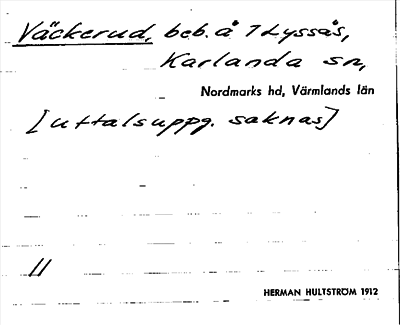 Väckerud, beb. å 1 Lyssås,
Karlanda sn,
Nordmarks hd, Värmlands län
[uttalsuppg. saknas]
11
HERMAN HULTSTRÖM 1912